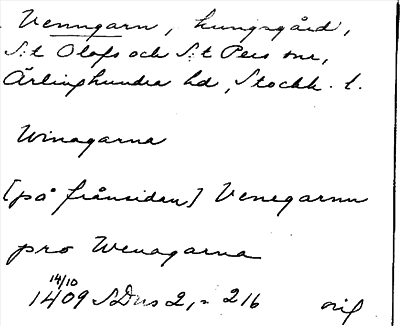 Venngarn, kungsgård,
S:t Olofs och S:t Pers snr,
Ärlinghundra hd, Stockh. l.
Winagarna
[på frånsidan] Venegarnn
pro Wenagarna
14/10
1409 SDns 2, s 216 orig